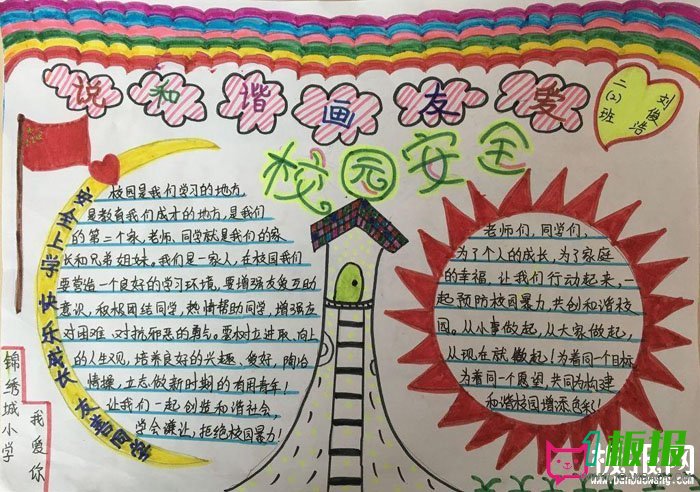 说和谐画友爱
二(2)班
刘俊浩
校园安全
平安上学 快乐成长 友善同学
校园是我们学习的地方,
是教育我们成才的地方,是我们
的第二个家,老师、同学就是我们的家
长和兄弟姐妹。我们是一家人,在校园我们
要营造一个良好的学习环境。要增强友爱互助
意识,积极团结同学,热情帮助同学,增强应
对困难、对抗邪恶的勇气。要树立进取、向上
的人生观,培养良好的兴趣、爱好,陶冶
情操,立志做新时期的有用青年!
让我们一起创造和谐社会,
学会谦让,拒绝校园暴力!
老师们,同学们,
为了个人的成长,为了家庭
的幸福,让我们行动起来,一
起预防校园暴力,共创和谐校
园。从小事做起,从大家做起,
从现在就做起!为着同一个目标,
为着同一个愿望,共同为构建
和谐校园增添色彩!
锦绣城小学
我爱你
板报网
www.banbaowang.com